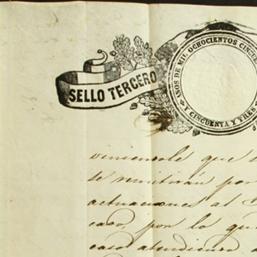 SELLO TERCERO
AÑOS DE MIL OCHOCIENTOS CINCUE
Y CINCUENTA Y TRES
que
se remitiran por
actuaciones al
caso, por lo qu
caso atendiendo a